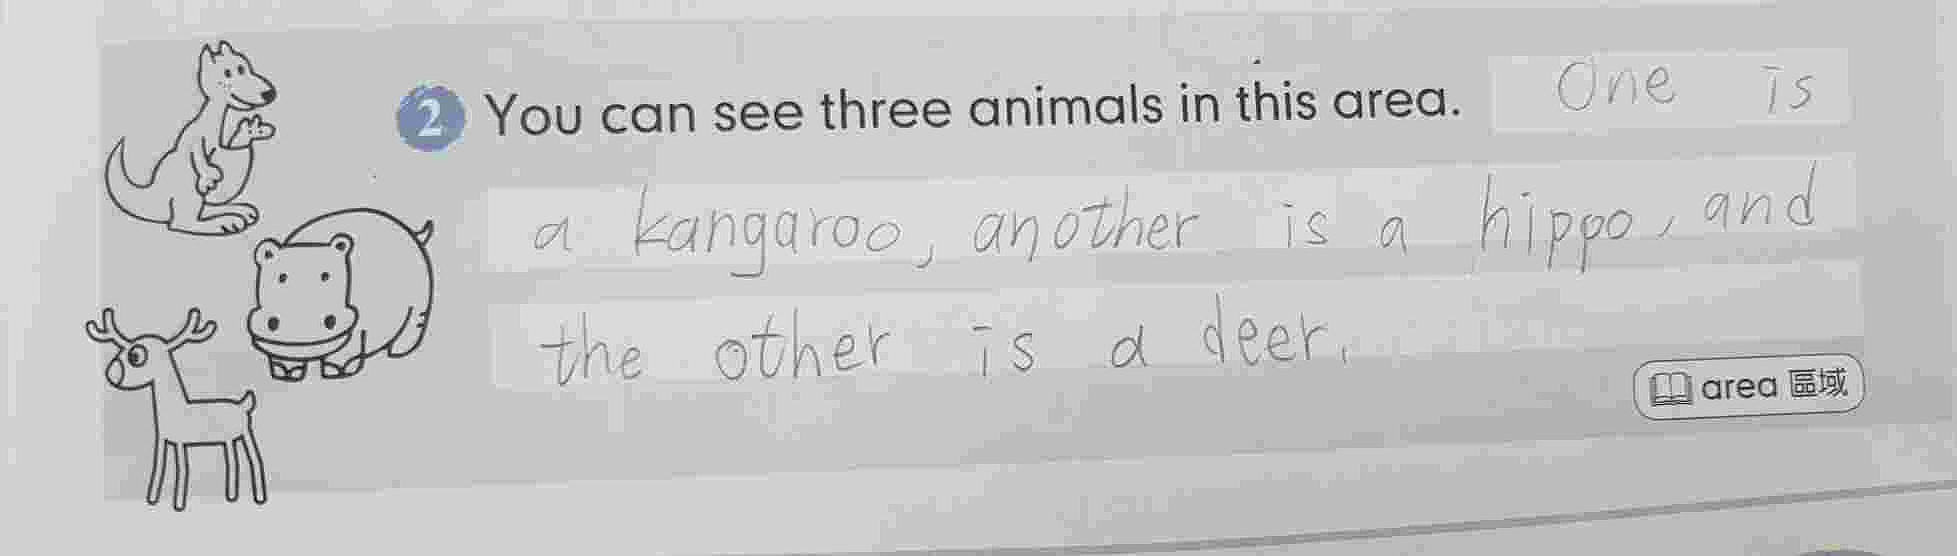 2 You can see three animals in this area. One is
a kangaroo, another is a hippo, and
the other is a deer.
area 區域